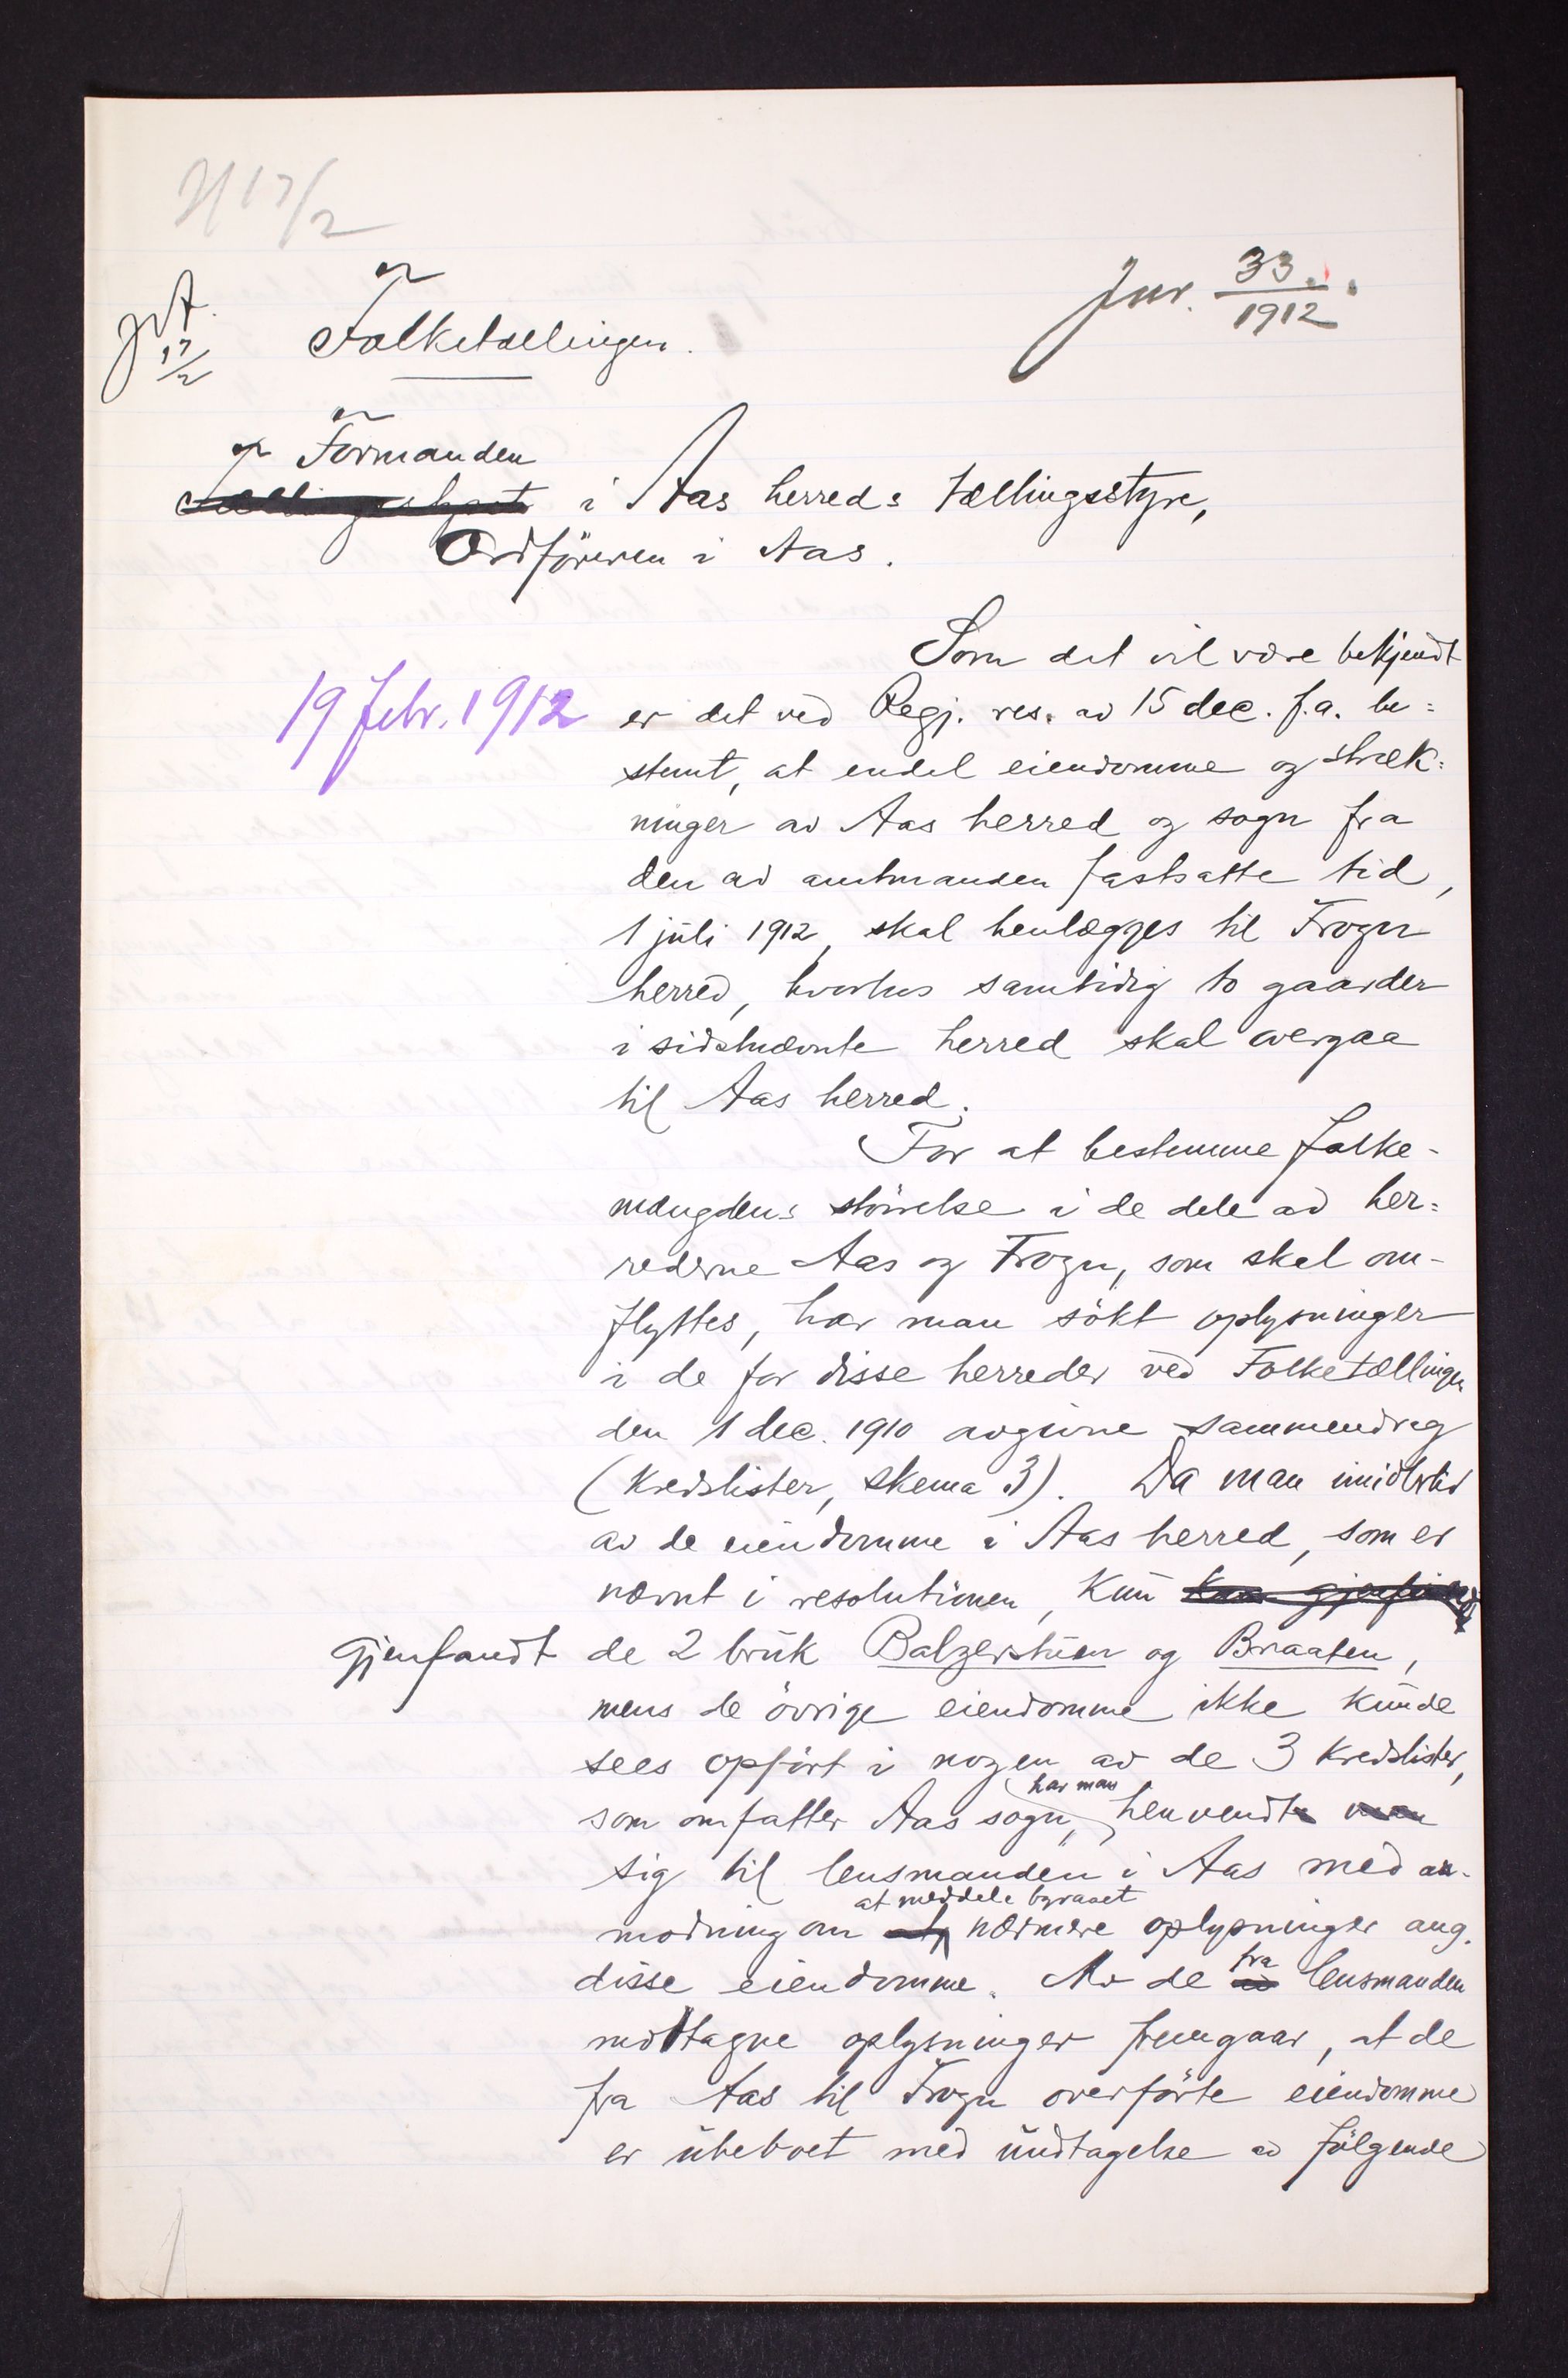 17/2
Jnr. 33/1912
17/2
Folketællingen.
Formanden
i Aas herreds tællingsstyre,
Ordföreren i Aas.
Som det vil være bekjendt
19 febr. 1912
er det ved Regj. res. av 15 dec. f.a. be=
stemt, at endel eiendomme og stræk=
ninger av Aas herred og sogn fra
den av amtmanden fastsatte tid,
1 juli 1912, skal henlægges til Frogn
herred, hvorhos samtidig to gaarder
i sidstnævnte herred skal overgaa
til Aas herred.
For at bestemme folke-
mængdens störrelse i de dele av her=
rederne Aas og Frogn, som skal om-
flyttes, har man sökt oplysninger
i de for disse herreder ved Folketællingen
den 1 dec. 1910 avgivne sammendrag
(kredslister, skema 3). Da man imidlertid
av de eiendomme i Aas herred, som er
nævnt i resolutionen, kun kan gjenfindes
gjenfandt de 2 bruk Balzerstuen og Braaten,
mens de övrige eiendomme ikke kunde
sees opfört i nogen av de 3 kredslister,
har man
som omfatter Aas sogn, henvendte man
sig til lensmanden i Aas med an-
at meddele byraaet
modning om at nærmere oplysninger ang.
fra
disse eiendomme. Av de av lensmanden
mottagne oplysninger fremgaar, at de
fra Aas til Frogn overförte eiendomme
er ubeboet med undtagelse av fölgende